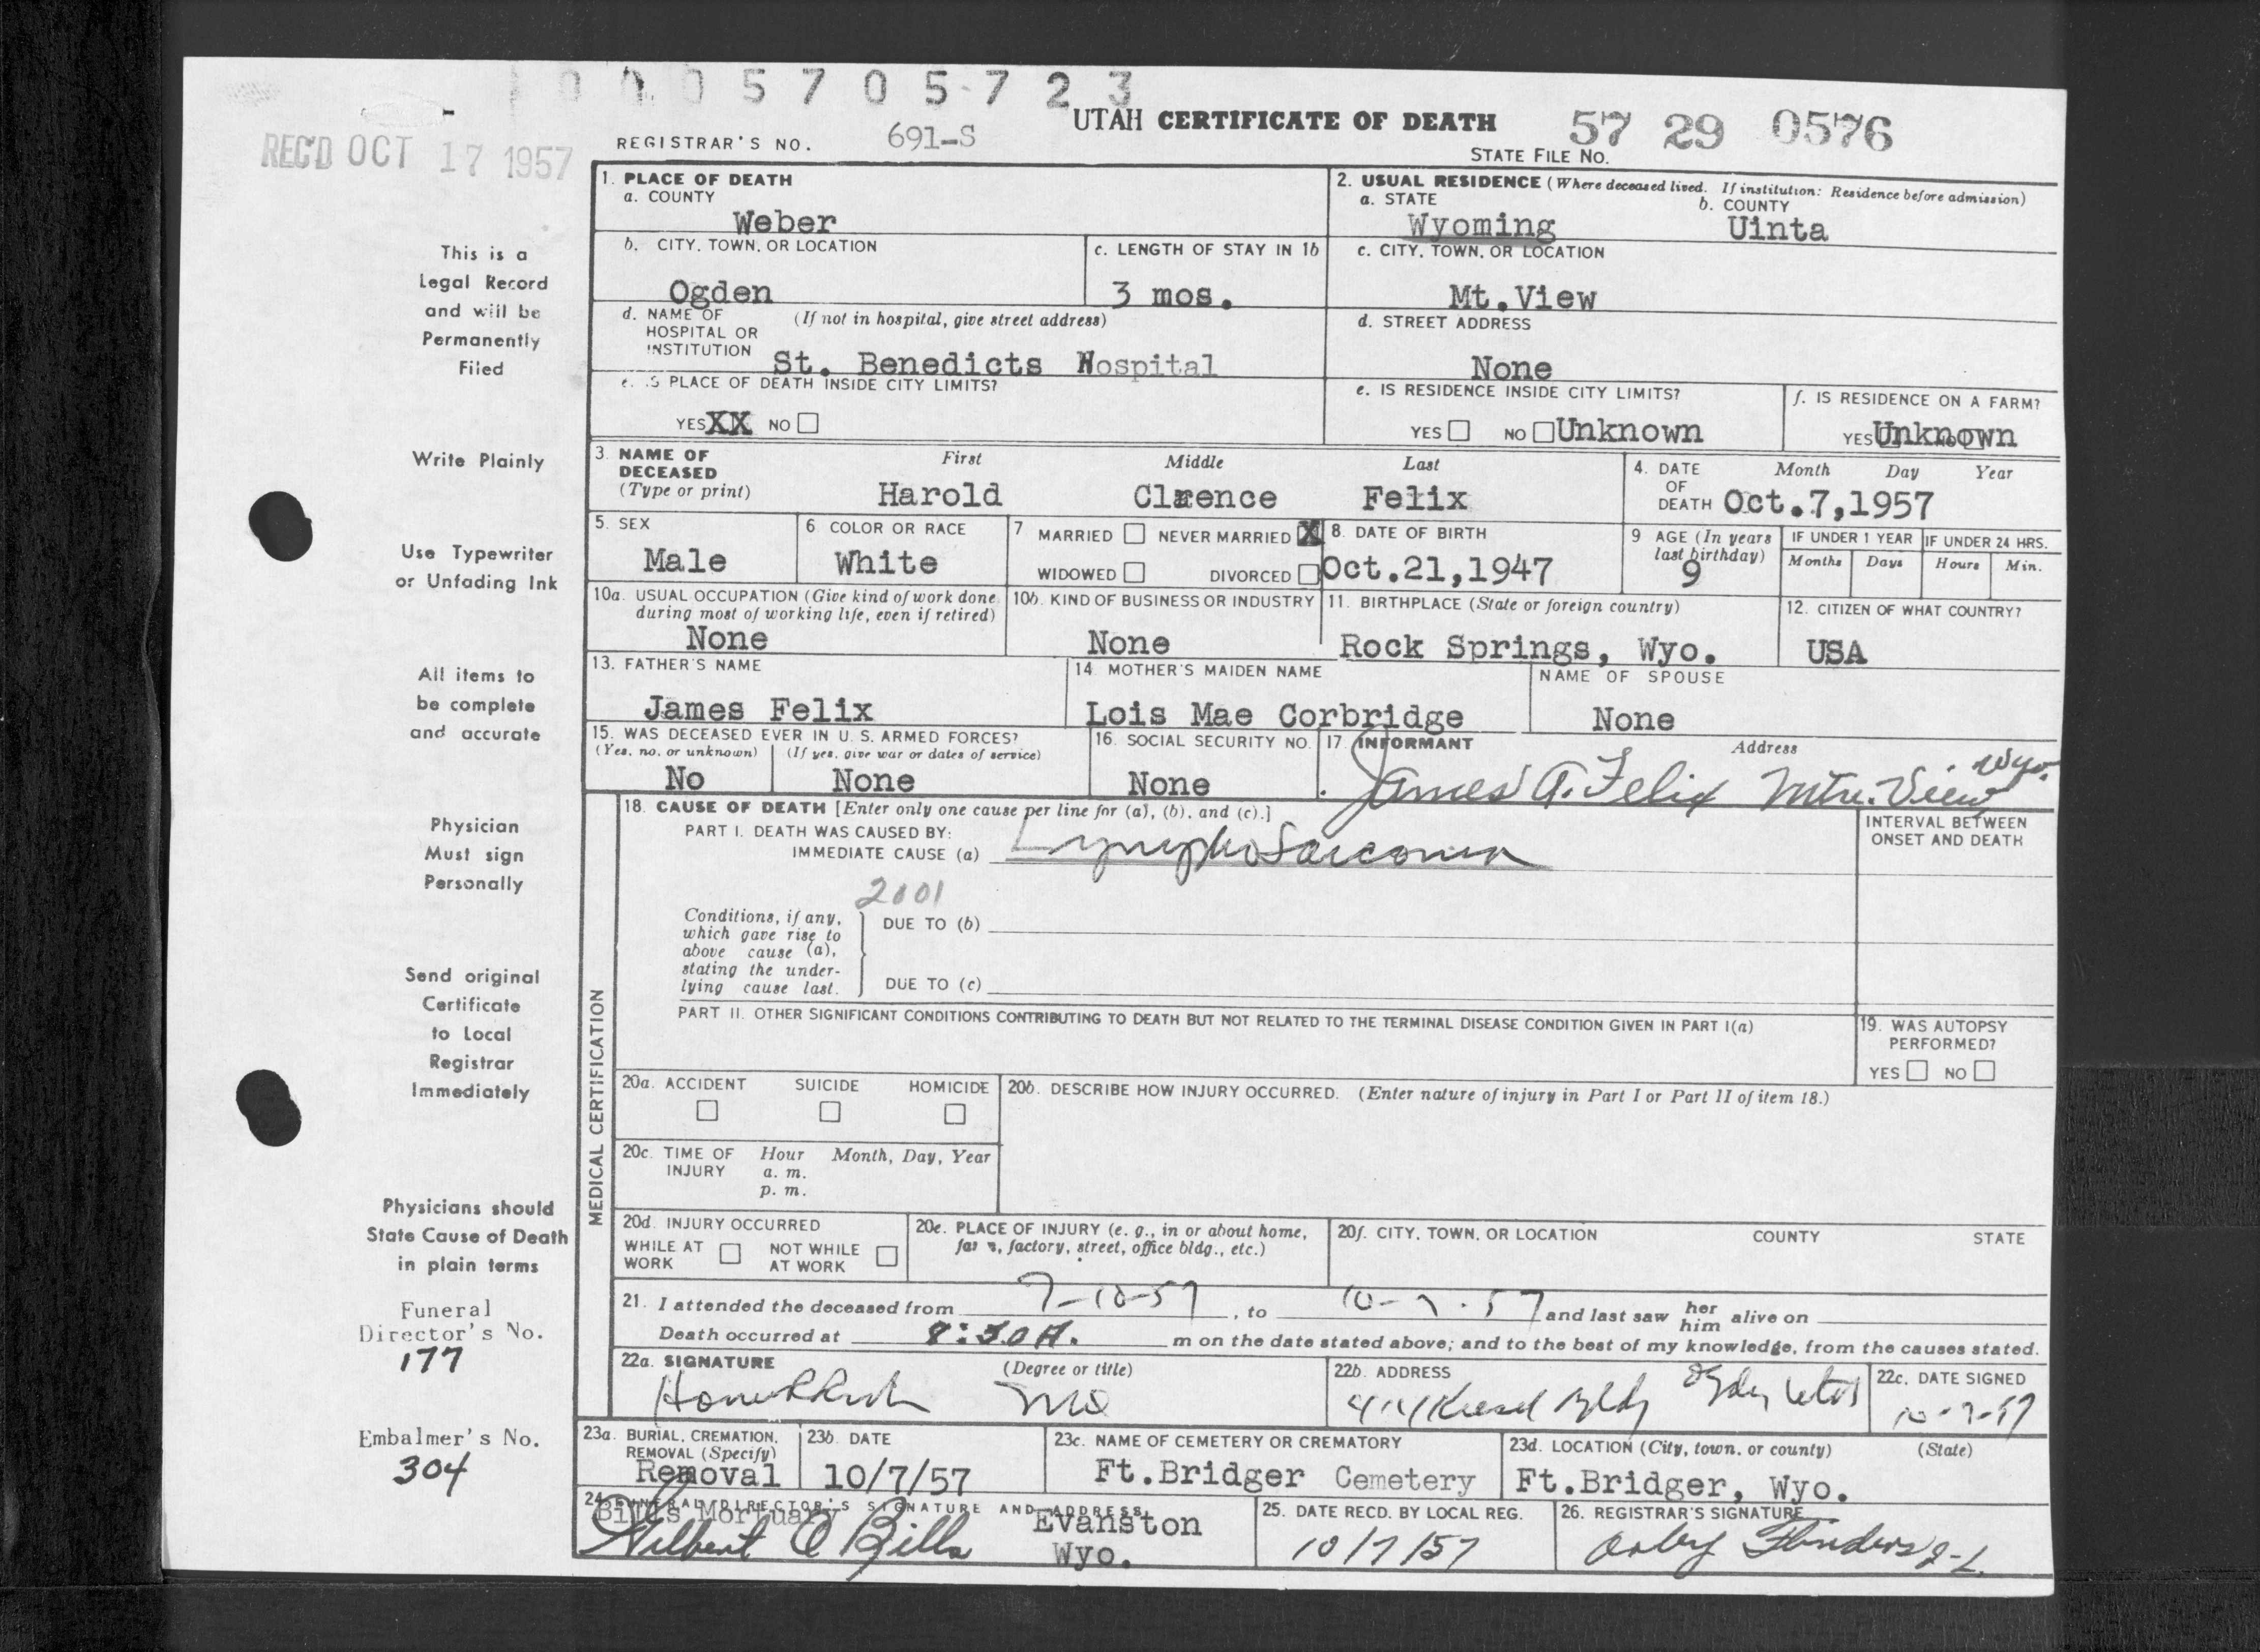 1 0 0 0 5 7 0 5 7 2 3
REC'D OCT 17 1957
REGISTRAR'S NO. 691-S
UTAH CERTIFICATE OF DEATH
57 29 0576
STATE FILE NO.
This is a
Legal Record
and will be
Permanently
Filed
Write Plainly
Use Typewriter
or Unfading Ink
All items to
be complete
and accurate
Physician
Must sign
Personally
Send original
Certificate
to Local
Registrar
Immediately
Physicians should
State Cause of Death
in plain terms
Funeral
Director's No.
177
Embalmer's No.
304
1. PLACE OF DEATH
a. COUNTY
Weber
2. USUAL RESIDENCE (Where deceased lived. If institution: Residence before admission)
a. STATE b. COUNTY
Wyoming Uinta
b. CITY, TOWN, OR LOCATION
Ogden
c. LENGTH OF STAY IN 1b
3 mos.
c. CITY, TOWN, OR LOCATION
Mt.View
d. NAME OF (If not in hospital, give street address)
HOSPITAL OR
INSTITUTION St. Benedicts Hospital
d. STREET ADDRESS
None
e. IS PLACE OF DEATH INSIDE CITY LIMITS?
YES XX NO
e. IS RESIDENCE INSIDE CITY LIMITS?
YES NO Unknown
f. IS RESIDENCE ON A FARM?
YES Unknown
3. NAME OF DECEASED (Type or print)
First Middle Last
Harold Clarence Felix
4. DATE OF DEATH
Month Day Year
Oct.7,1957
5. SEX
Male
6. COLOR OR RACE
White
7 MARRIED NEVER MARRIED X
WIDOWED DIVORCED
8. DATE OF BIRTH
Oct.21,1947
9 AGE (In years last birthday)
9
IF UNDER 1 YEAR
Months Days
IF UNDER 24 HRS.
Hours Min.
10a. USUAL OCCUPATION (Give kind of work done
during most of working life, even if retired)
None
10b. KIND OF BUSINESS OR INDUSTRY
None
11. BIRTHPLACE (State or foreign country)
Rock Springs, Wyo.
12. CITIZEN OF WHAT COUNTRY?
USA
13. FATHER'S NAME
James Felix
14. MOTHER'S MAIDEN NAME
Lois Mae Corbridge
NAME OF SPOUSE
None
15. WAS DECEASED EVER IN U. S. ARMED FORCES?
(Yes, no, or unknown) (If yes, give war or dates of service)
No None
16. SOCIAL SECURITY NO.
None
17. INFORMANT Address
James A. Felix Mtn. View Wyo.
MEDICAL CERTIFICATION
18. CAUSE OF DEATH [Enter only one cause per line for (a), (b), and (c).]
PART I. DEATH WAS CAUSED BY:
IMMEDIATE CAUSE (a) LymphoSarcoma
INTERVAL BETWEEN
ONSET AND DEATH
2001
Conditions, if any,
which gave rise to
above cause (a),
stating the under-
lying cause last.
DUE TO (b)
DUE TO (c)
PART II. OTHER SIGNIFICANT CONDITIONS CONTRIBUTING TO DEATH BUT NOT RELATED TO THE TERMINAL DISEASE CONDITION GIVEN IN PART I(a)
19. WAS AUTOPSY
PERFORMED?
YES NO
20a. ACCIDENT SUICIDE HOMICIDE
20b. DESCRIBE HOW INJURY OCCURRED. (Enter nature of injury in Part I or Part II of item 18.)
20c. TIME OF INJURY
Hour Month, Day, Year
a. m.
p. m.
20d. INJURY OCCURRED
WHILE AT WORK NOT WHILE AT WORK
20e. PLACE OF INJURY (e. g., in or about home,
farm, factory, street, office bldg., etc.)
20f. CITY, TOWN, OR LOCATION COUNTY STATE
21. I attended the deceased from 7-10-57, to 10-7-57 and last saw her him alive on
Death occurred at 8:30A. m on the date stated above; and to the best of my knowledge, from the causes stated.
22a. SIGNATURE (Degree or title)
MD
22b. ADDRESS
Kiesel Bldg Ogden Utah
22c. DATE SIGNED
10-7-57
23a. BURIAL, CREMATION,
REMOVAL (Specify)
Removal
23b. DATE
10/7/57
23c. NAME OF CEMETERY OR CREMATORY
Ft.Bridger Cemetery
23d. LOCATION (City, town, or county) (State)
Ft.Bridger, Wyo.
24. FUNERAL DIRECTOR'S SIGNATURE AND ADDRESS
Bills Mortuary Evanston
Wyo.
Gilbert O Bills
25. DATE RECD. BY LOCAL REG.
10/7/57
26. REGISTRAR'S SIGNATURE
Flinders